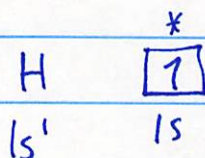 *
H 1
1s¹ 1s